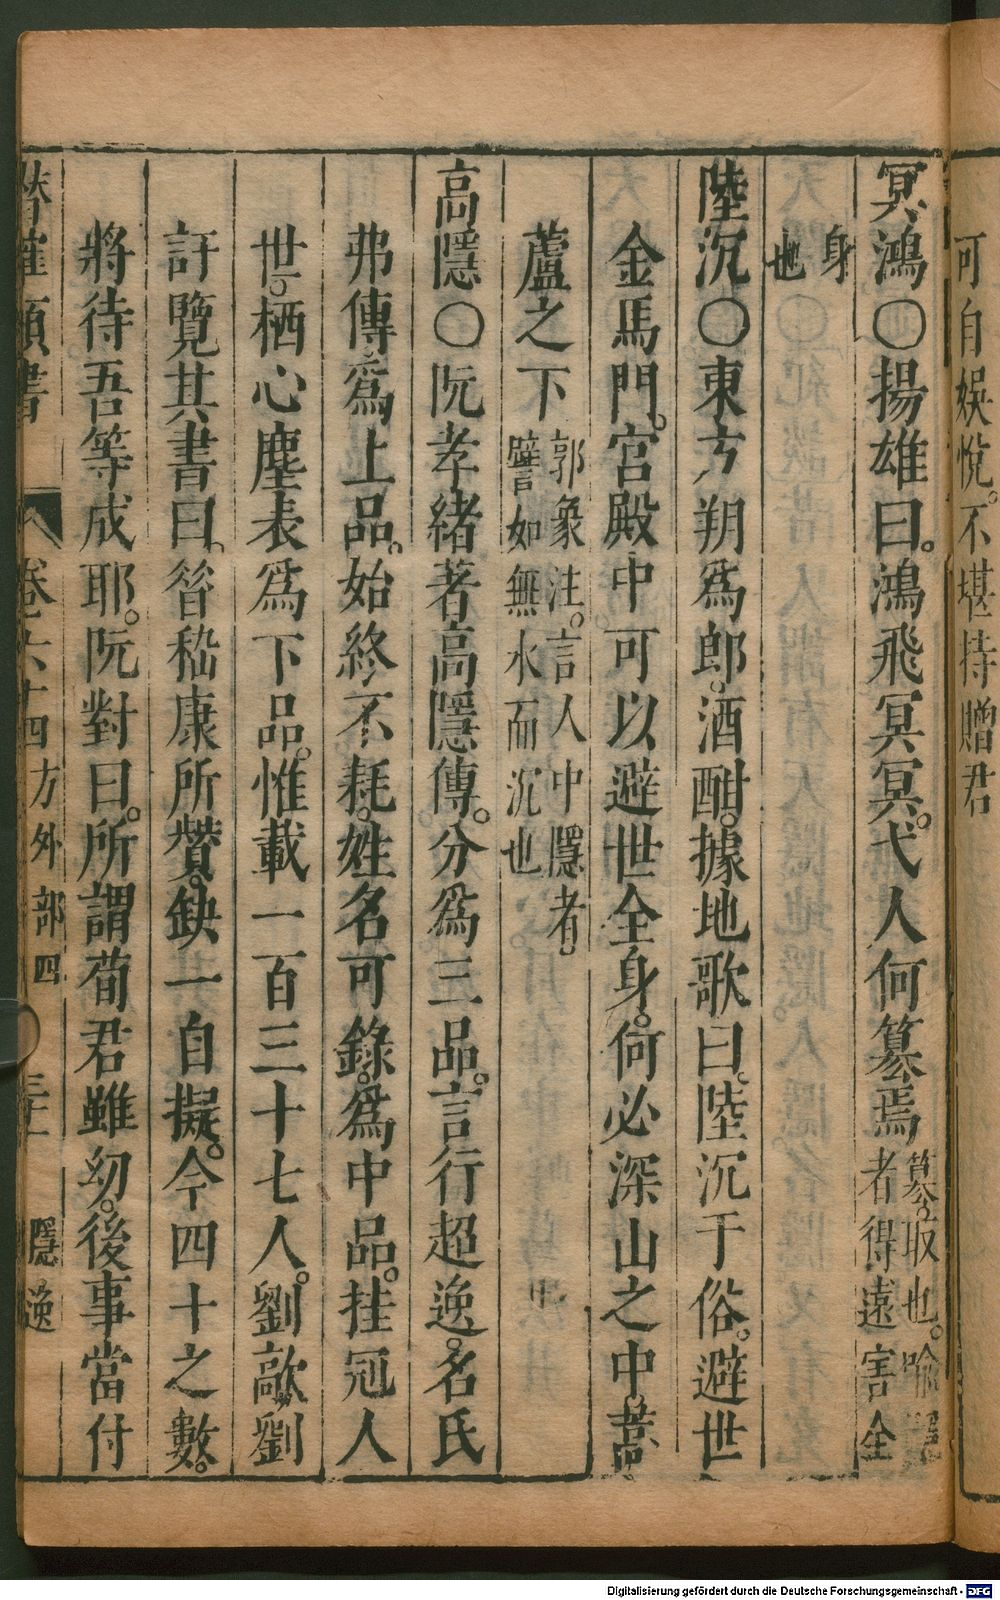 可自娛悅。不堪持贈君
冥鴻〇揚雄曰。鴻飛冥冥。弋人何篡焉篡。取也。喻隱者得遠害全
身也
陸沉〇東方朔為郎。酒酣。據地歌曰。陸沉于俗。避世
金馬門。宮殿中可以避世全身。何必深山之中。蒿
蘆之下郭象注。言人中隱者。譬如無水而沉也
高隱〇阮孝緒著高隱傳。分為三品。言行超逸。名氏
弗傳。為上品。始終不耗。姓名可錄。為中品。挂冠人
世。栖心塵表為下品。惟載一百三十七人。劉歊劉
訏覽其書曰。昝嵇康所贊。缺一自擬。今四十之數。
將待吾等成耶。阮對曰。所謂荀君雖幼。後事當付
潛確類書 卷六十四方外部四 三十一 隱逸
Digitalisierung gefördert durch die Deutsche Forschungsgemeinschaft - DFG